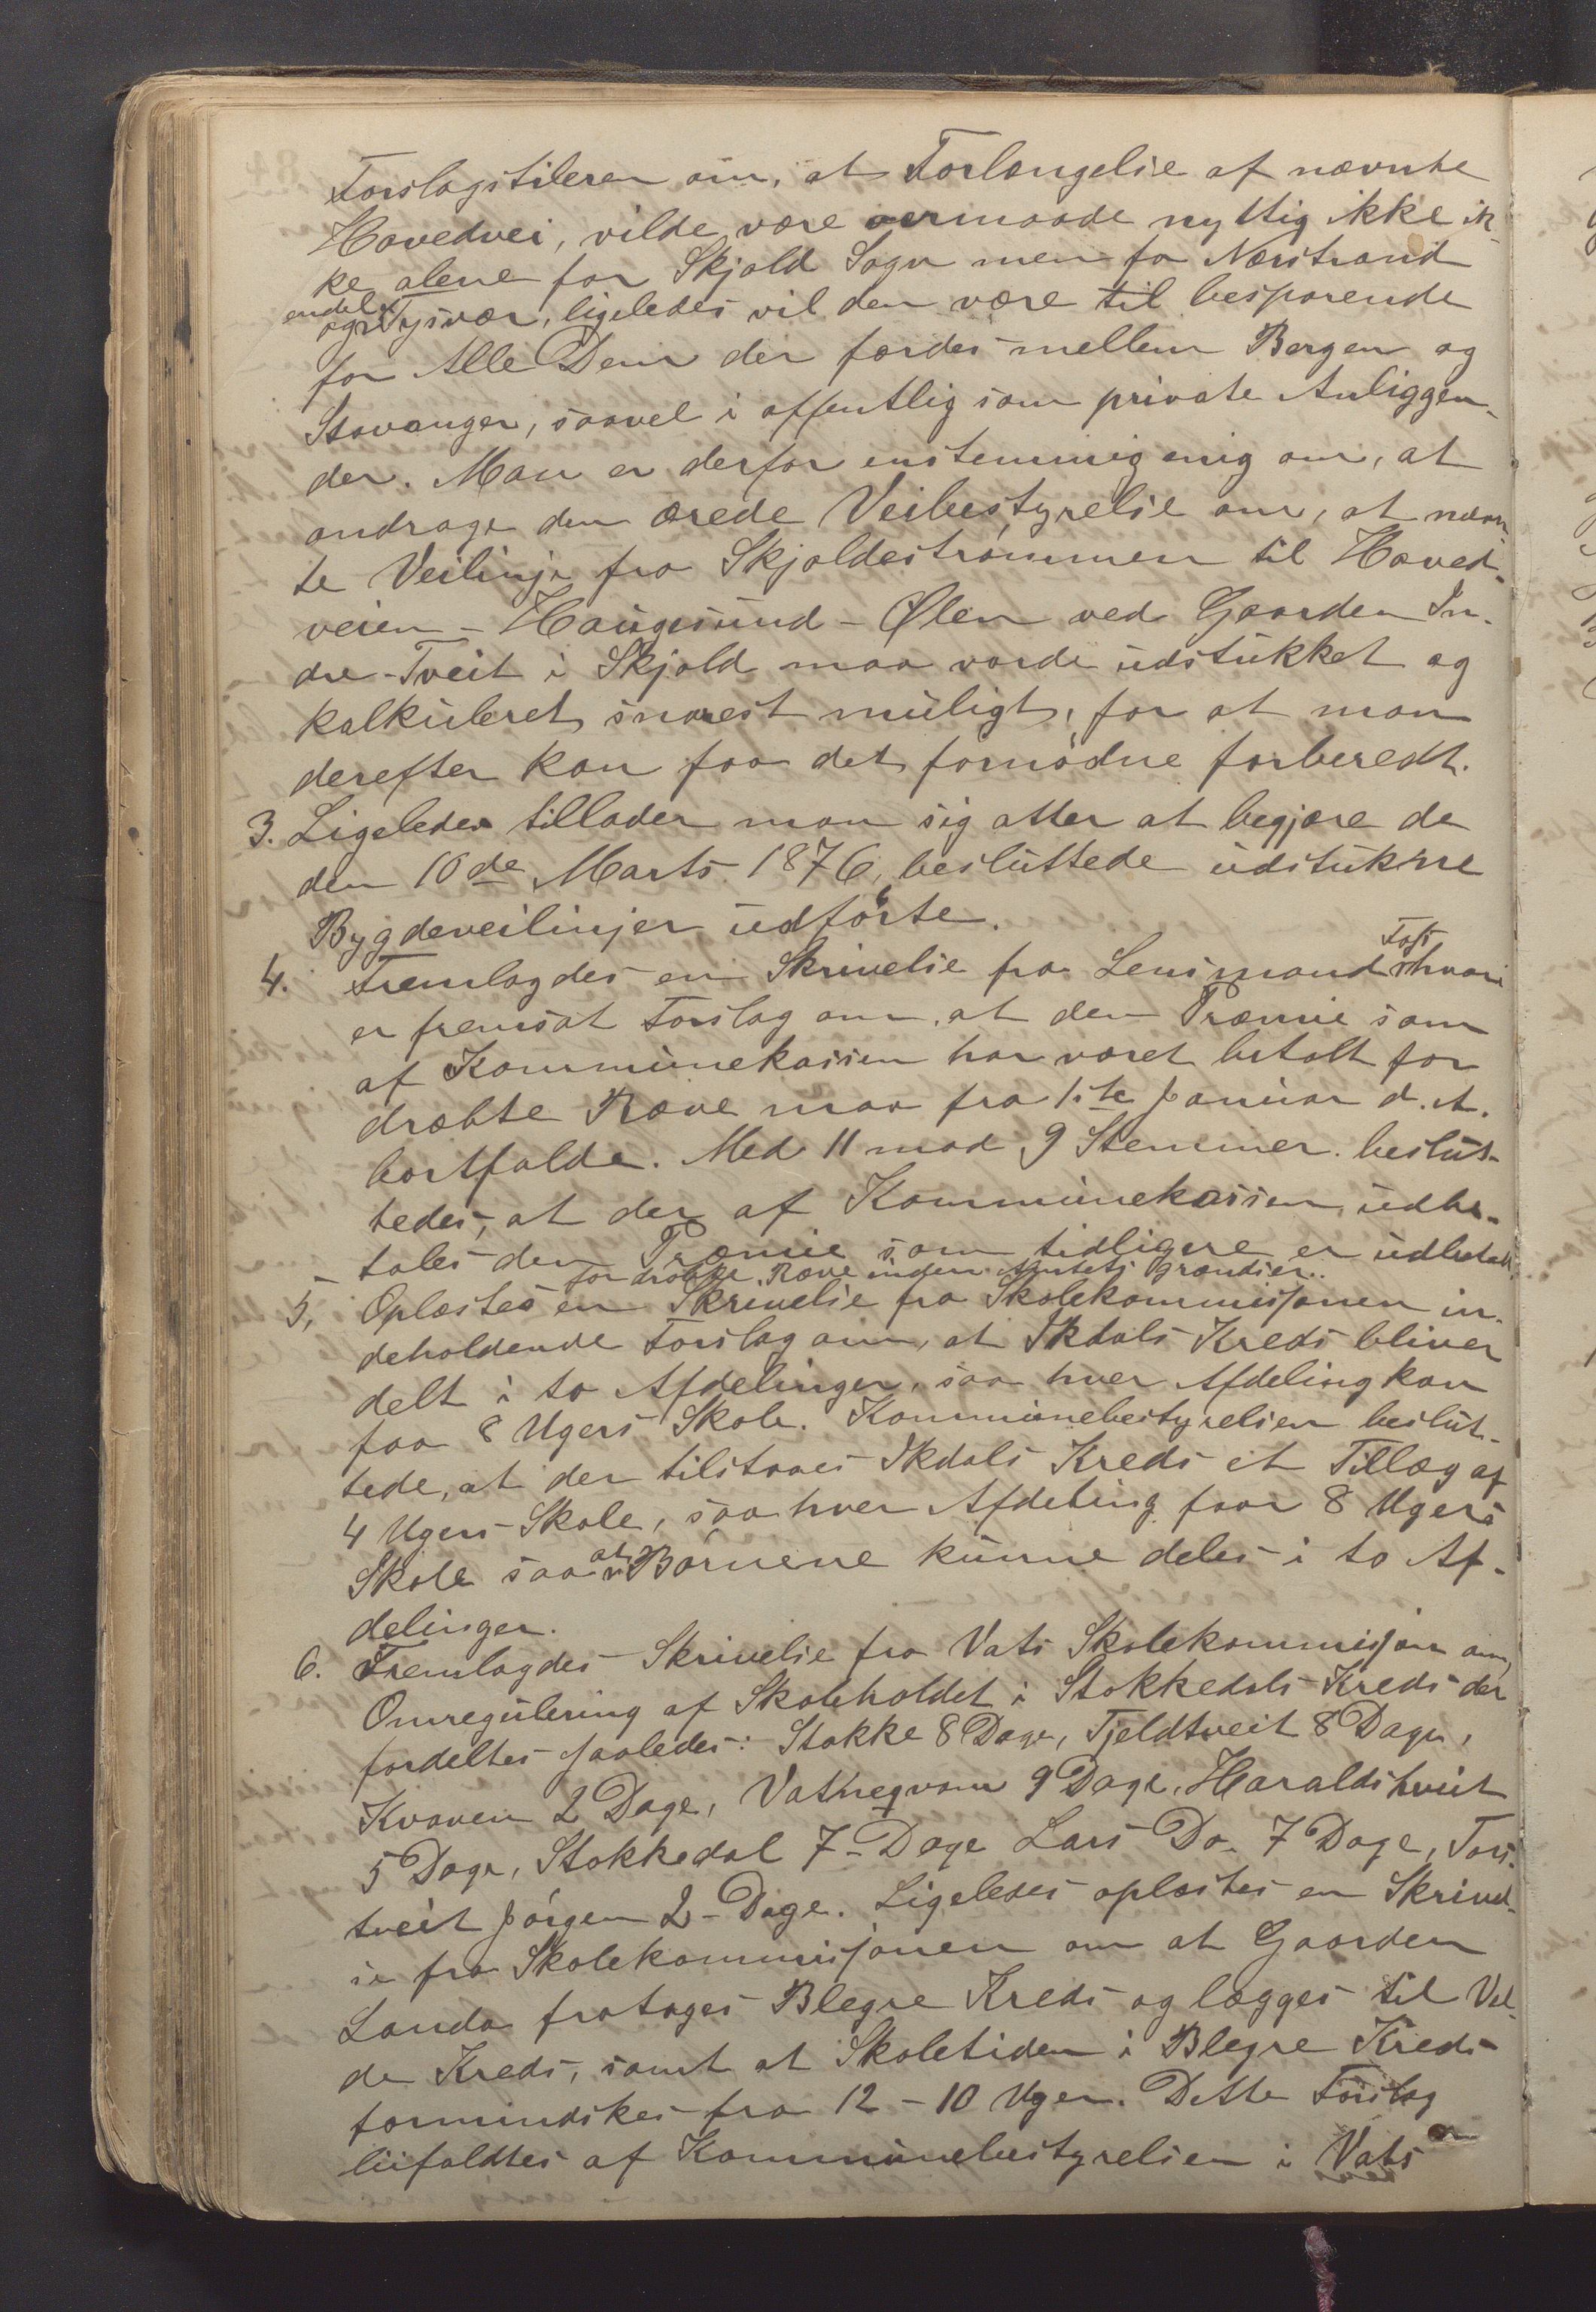 Forslagstileren om, at Forlængelse af nævnte
Hovedvei, vilde være overmaade nyttig ikke ik-
ke alene for Skjold Sogn men for Nærstrand
og endel Tysvær, ligeledes vil den være til besparende
for Alle Dem der færdes mellem Bergen og
Stavanger, saavel i offentlig som private Anliggen-
der. Man er derfor enstemmig enig om, at
andrage den ærede Veibestyrelse om, at nævn-
te Veilinje fra Skjoldestrømmen til Hoved-
veien - Haugesund - Ølen ved Gaarden In-
dre-Tveit i Skjold maa vorde udstukket og
kalkuleret snarest muligt, for at man
derefter kan faa det fornødne forberedt.
3. Ligeledes tillader man sig atter at begjære de
den 10de Marts 1876, besluttede udstukne
Bygdeveilinjer udførte.
4. Fremlagdes en Skrivelse fra Lensmand Toft hvori
er fremsat Forslag om, at den Præmie som
af Kommunekassen har været betalt for
dræbte Ræve maa fra 1ste Januar d. A.
bortfalde. Med 11 mod 9 Stemmer beslut-
tedes, at der af Kommunekassen udbe-
tales den Præmie som tidligere er udbetalt
for dræbte Ræve inden Amtets Grændser.
5. Oplæstes en Skrivelse fra Skolekommisjonen in-
deholdende Forslag om, at Ikdals Kreds bliver
delt i to Afdelinger, saa hver Afdeling kan
faa 8 Ugers Skole. Kommunebestyrelsen beslut-
tede, at der tilstaaes Ikdals Kreds et Tillæg af
4 Ugers Skole, saa hver Afdeling faar 8 Ugers
Skole saa at Børnene kunne deles i to Af-
delinger.
6. Fremlagdes Skrivelse fra Vats Skolekommisjon om,
Omregulering af Skoleholdet i Stokkedals Kreds der
fordeltes saaledes: Stokke 8 Dage, Tjeldtveit 8 Dage,
Kvaven 2 Dage, Vatneqvam 9 Dage, Haraldstveit
5 Dage, Stokkedal 7 Dage Lars Do. 7 Dage, Tors-
tveit Jørgen 2 Dage. Ligeledes oplæstes en Skrivel-
se fra Skolekommisjonen om at Gaarden
Landa fratages Blegre Kreds og lægges til Val-
de Kreds, samt at Skoletiden i Blegre Kreds
formindskes fra 12 - 10 Uger. Dette Forslag
bifaldtes af Kommunebestyrelsen i Vats